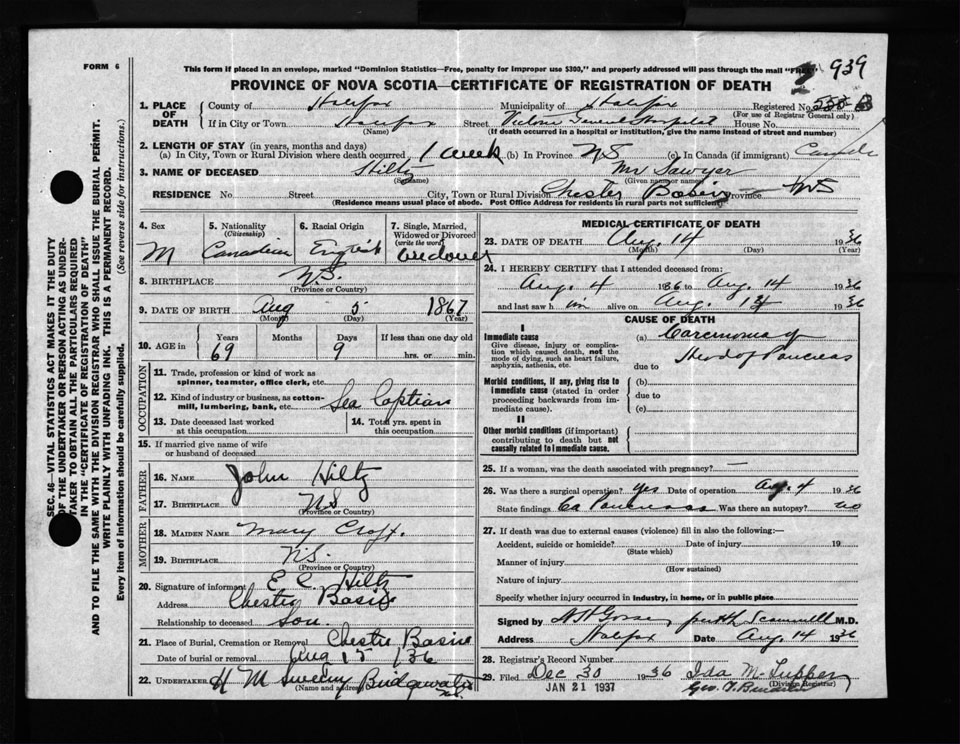 FORM 6
This form if placed in an envelope, marked "Dominion Statistics—Free, penalty for improper use $300," and properly addressed will pass through the mail "FREE"
939
PROVINCE OF NOVA SCOTIA—CERTIFICATE OF REGISTRATION OF DEATH
1. PLACE OF DEATH
County of Halifax Municipality of Halifax Registered No.
(For use of Registrar General only)
If in City or Town Halifax Street Victoria General Hospital House No.
(Name) (If death occurred in a hospital or institution, give the name instead of street and number)
2. LENGTH OF STAY (in years, months and days)
(a) In City, Town or Rural Division where death occurred 1 week (b) In Province NS (c) In Canada (if immigrant) Canada
3. NAME OF DECEASED Hiltz Mr Sawyer
(Surname) (Given name or names)
RESIDENCE No. Street City, Town or Rural Division Chester Basin Province NS
(Residence means usual place of abode. Post Office Address for residents in rural parts not sufficient)
4. Sex M
5. Nationality (Citizenship) Canadian
6. Racial Origin English
7. Single, Married, Widowed or Divorced (write the word) Widower
8. BIRTHPLACE N.S.
(Province or Country)
9. DATE OF BIRTH Aug 5 1867
(Month) (Day) (Year)
10. AGE in Years Months Days If less than one day old
69 9 hrs. or min.
OCCUPATION
11. Trade, profession or kind of work as spinner, teamster, office clerk, etc.
12. Kind of industry or business, as cotton-mill, lumbering, bank, etc. Sea Captian
13. Date deceased last worked at this occupation
14. Total yrs. spent in this occupation
15. If married give name of wife or husband of deceased
FATHER
16. NAME John Hiltz
17. BIRTHPLACE NS
(Province or Country)
MOTHER
18. MAIDEN NAME Mary Croft.
19. BIRTHPLACE N.S.
(Province or Country)
20. Signature of informant E C Hiltz
Address Chester Basin
Relationship to deceased Son.
21. Place of Burial, Cremation or Removal Chester Basin
Date of burial or removal Aug 15 /36
22. UNDERTAKER H M Sweeny Bridgewater
(Name and address)
MEDICAL CERTIFICATE OF DEATH
23. DATE OF DEATH Aug. 14 1936
(Month) (Day) (Year)
24. I HEREBY CERTIFY that I attended deceased from:
Aug. 4 1936 to Aug. 14 1936
and last saw h im alive on Aug. 14 1936
CAUSE OF DEATH
I
Immediate cause
Give disease, injury or complication which caused death, not the mode of dying, such as heart failure, asphyxia, asthenia, etc.
(a) Carcinoma of
Head of Pancreas
due to
Morbid conditions, if any, giving rise to immediate cause (stated in order proceeding backwards from immediate cause).
(b)
due to
(c)
II
Other morbid conditions (if important) contributing to death but not causally related to immediate cause.
25. If a woman, was the death associated with pregnancy? —
26. Was there a surgical operation? yes Date of operation Aug. 4 1936
State findings Ca Pancreas Was there an autopsy? no
27. If death was due to external causes (violence) fill in also the following:—
Accident, suicide or homicide? Date of injury 19
(State which)
Manner of injury
(How sustained)
Nature of injury
Specify whether injury occurred in industry, in home, or in public place
Signed by M.D.
Address Halifax Date Aug. 14 1936
28. Registrar's Record Number
29. Filed Dec 30 1936 Ida M. Tupper
(Division Registrar)
JAN 21 1937
SEC. 46—VITAL STATISTICS ACT MAKES IT THE DUTY
OF THE UNDERTAKER OR PERSON ACTING AS UNDER-
TAKER TO OBTAIN ALL THE PARTICULARS REQUIRED
IN THE "CERTIFICATE OF REGISTRATION OF DEATH"
AND TO FILE THE SAME WITH THE DIVISION REGISTRAR WHO SHALL ISSUE THE BURIAL PERMIT.
WRITE PLAINLY WITH UNFADING INK. THIS IS A PERMANENT RECORD.
Every item of information should be carefully supplied. (See reverse side for instructions.)